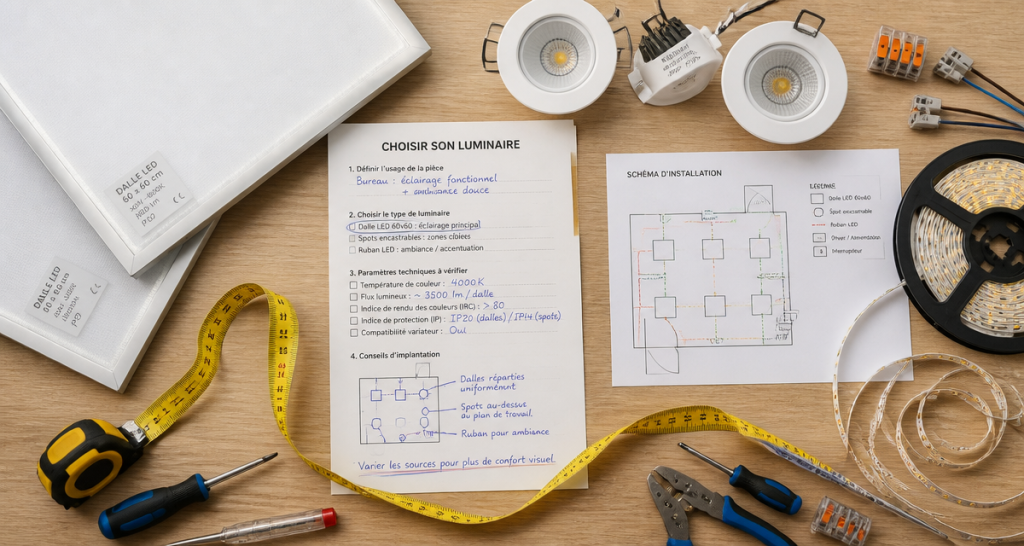 DALLE LED
60 x 60 cm
CHOISIR SON LUMINAIRE
1. Définir l'usage de la pièce
Bureau : éclairage fonctionnel
+ ambiance douce
2. Choisir le type de luminaire
Dalle LED 60x60 : éclairage principal
Spots encastrables : zones ciblées
Ruban LED : ambiance / accentuation
3. Paramètres techniques à vérifier
Température de couleur : 4000K
Flux lumineux : ~ 3500 lm / dalle
Indice de rendu des couleurs (IRC) : > 80
Indice de protection (IP) : IP20 (dalles) / IP44 (spots)
Compatibilité variateur : Oui
4. Conseils d'implantation
Dalles réparties
uniformément
Spots au-dessus
au plan de travail.
Ruban pour ambiance
Varier les sources pour plus de confort visuel.
SCHÉMA D'INSTALLATION
Dalle LED 60x60
Spot
LED
DALLE LED